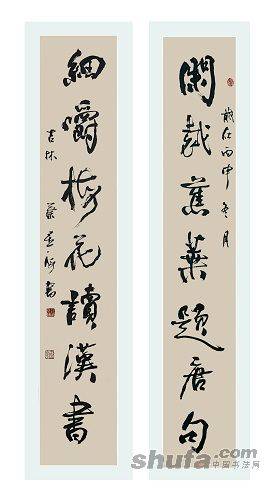 閑裁蕉葉題唐句
歲在丙申冬月
細嚼梅花讀漢書
吉林 蔡
書
shufa.com
中国书法网